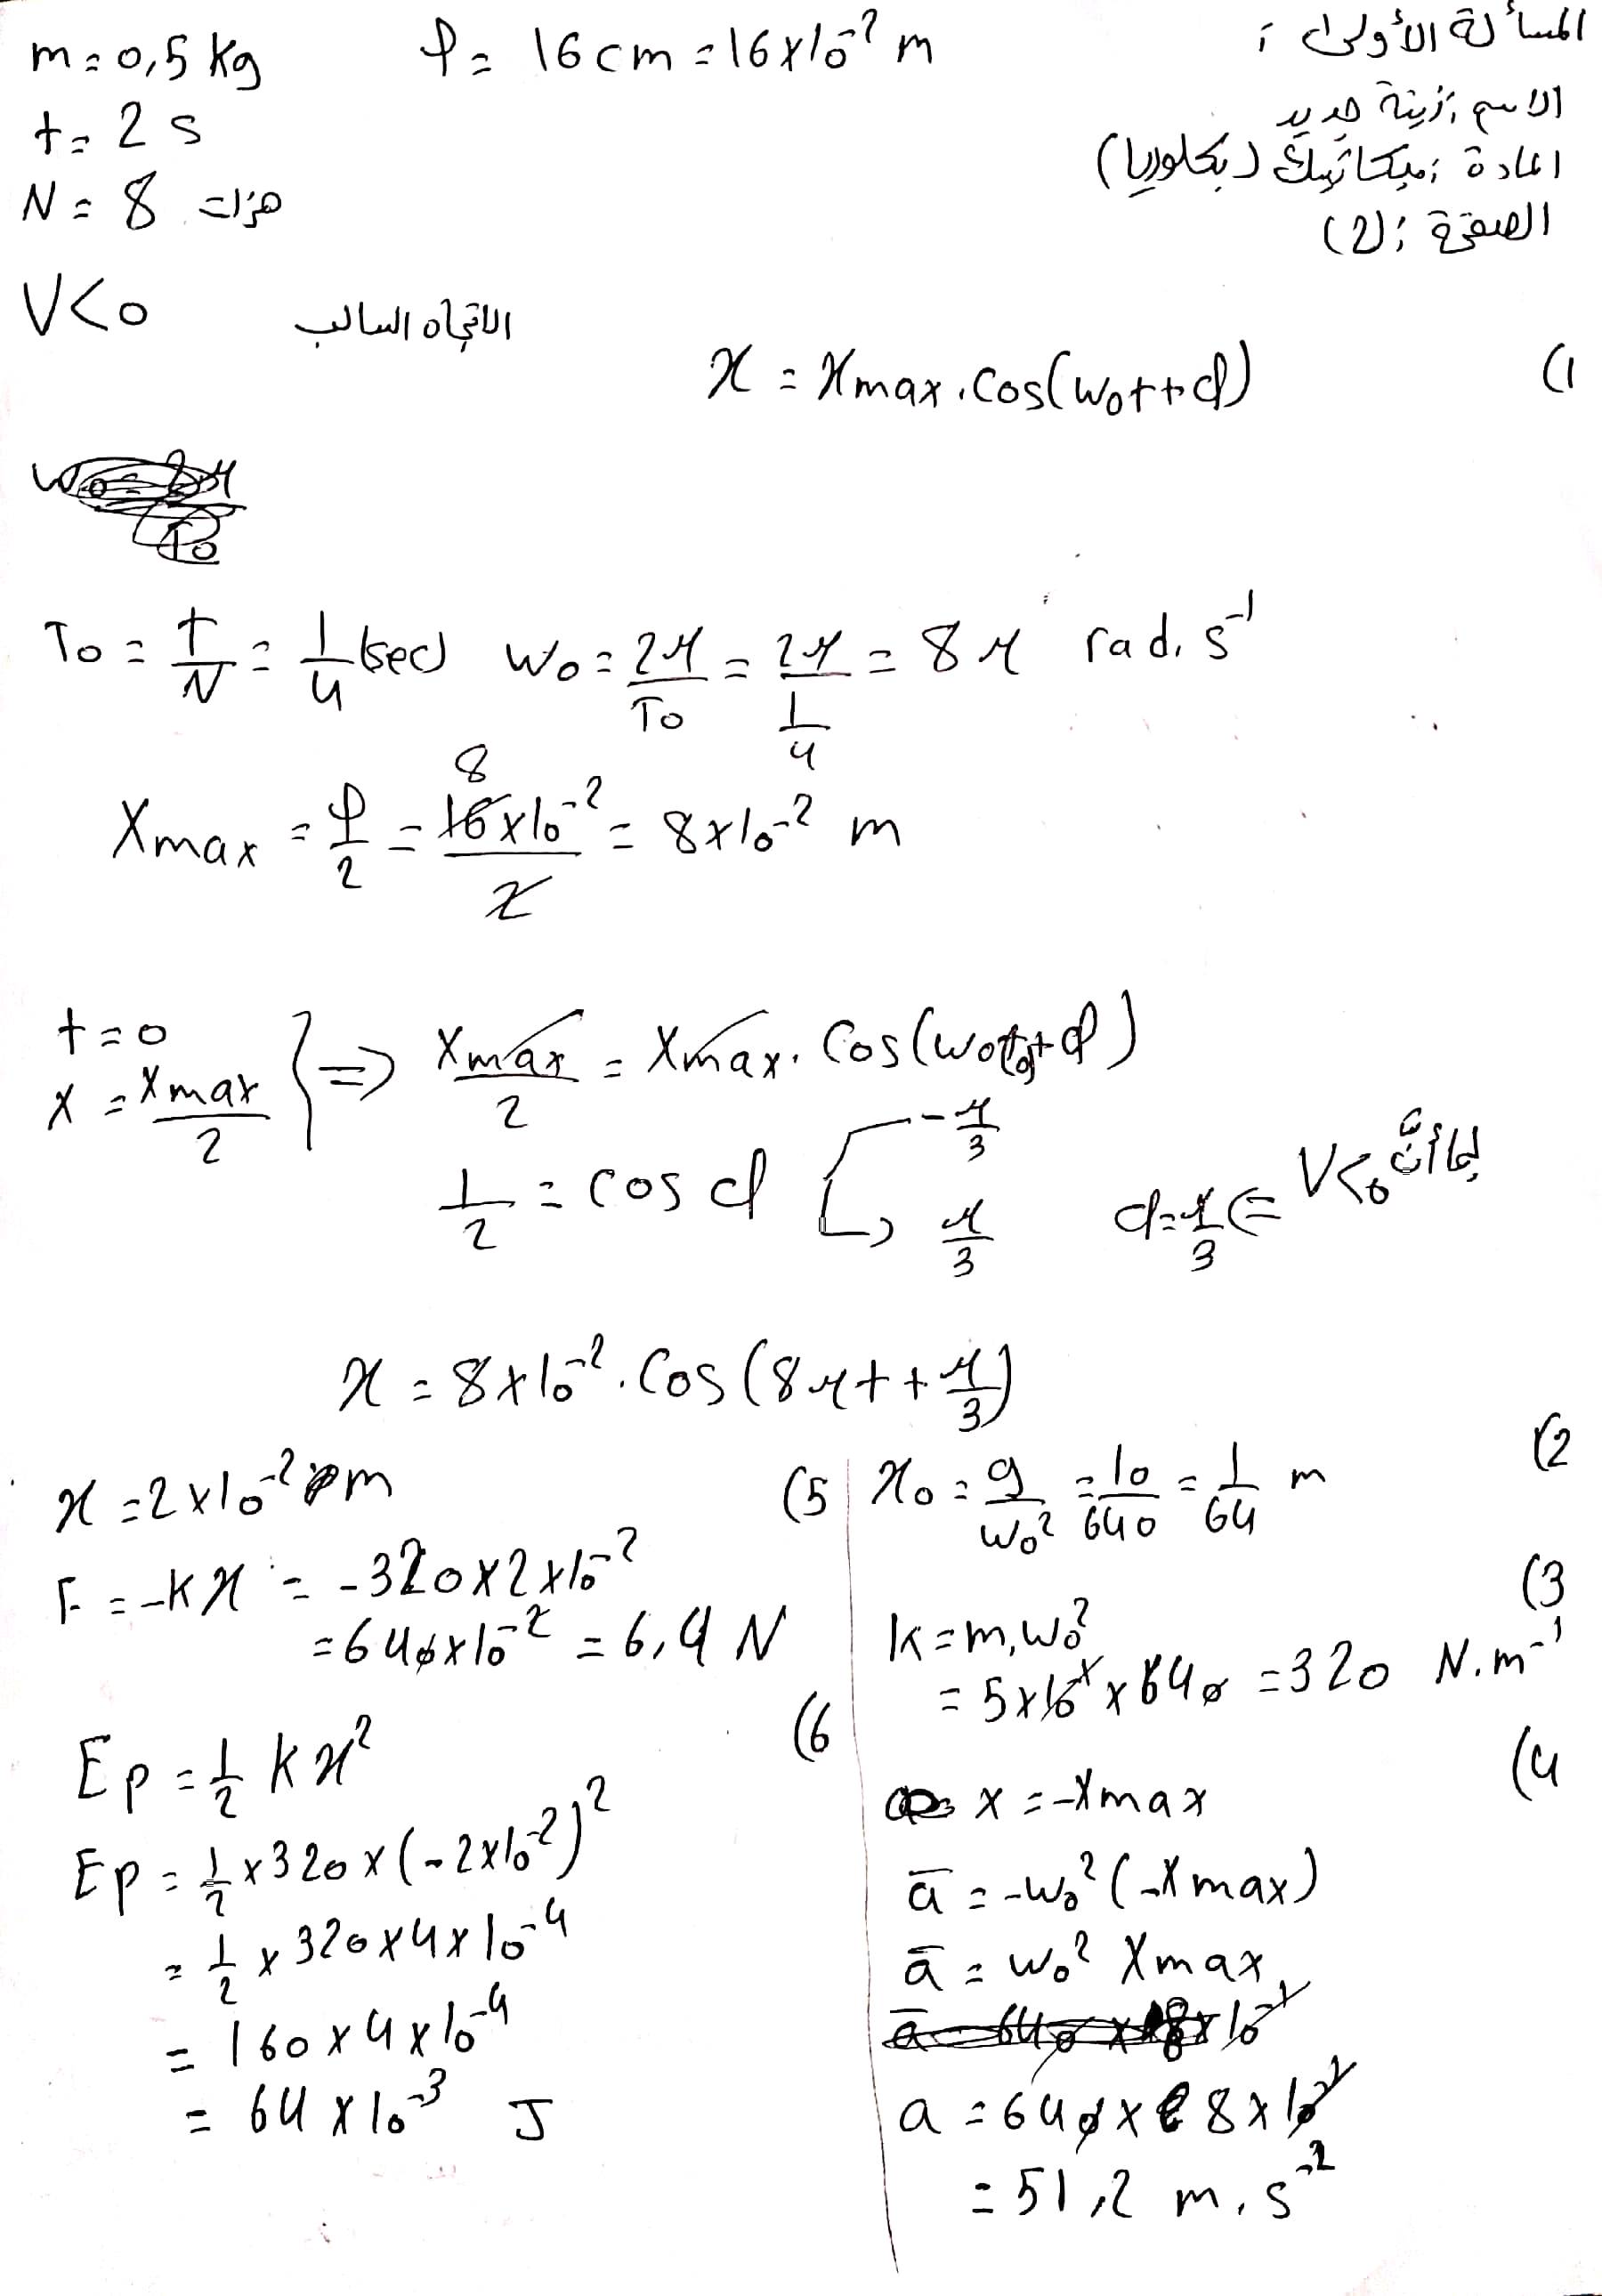 المسألة الأولى:
الاسم: زينة حديد
المادة: ميكانيك (بكلوريا)
الصفحة: (2)
m = 0,5 Kg
ℓ = 16 cm = 16 × 10⁻² m
t = 2 s
N = 8 هزات
V < 0 الاتجاه السالب
1) x = Xmax . Cos(ω₀t + φ)
T₀ = t/N = 1/4 (sec) ω₀ = 2π/T₀ = 2π/(1/4) = 8π rad. s⁻¹
Xmax = ℓ/2 = 16 × 10⁻²/2 = 8 × 10⁻² m
8
t = 0
x = Xmax/2 } ⇒ Xmax/2 = Xmax . Cos(ω₀t + φ)
1/2 = cos φ
-π/3
π/3
بما أنّ V < 0 ⇒ φ = π/3
x = 8 × 10⁻² . Cos(8πt + π/3)
2) x₀ = g/ω₀² = 10/640 = 1/64 m
3)
K = m . ω₀²
= 5 × 10⁻¹ × 640 = 320 N.m⁻¹
4)
x = -Xmax
a̅ = -ω₀² (-Xmax)
a̅ = ω₀² Xmax
a = 640 × 8 × 10⁻²
= 51,2 m . s⁻²
5) x = 2 × 10⁻² m
F = -Kx = -320 × 2 × 10⁻²
= 640 × 10⁻² = 6,4 N
6)
Ep = 1/2 K x²
Ep = 1/2 × 320 × (-2 × 10⁻²)²
= 1/2 × 320 × 4 × 10⁻⁴
= 160 × 4 × 10⁻⁴
= 64 × 10⁻³ J